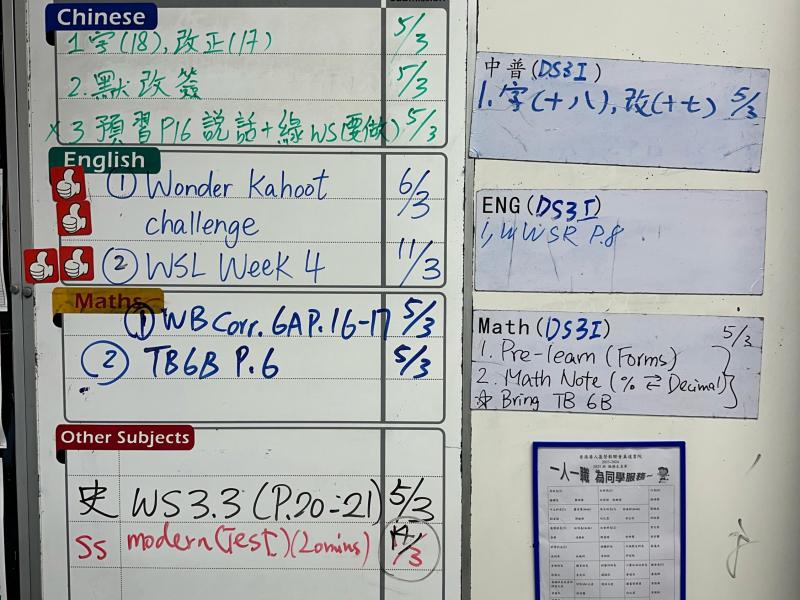 Submission
Chinese
1 字(18), 改正(17) 5/3
2. 默改簽 5/3
x 3 預習P16 説話+線WS(要做) 5/3
English
① Wonder Kahoot 6/3
challenge
② WSL Week 4 11/3
Maths
① WB Corr. 6A P.16-17 5/3
② TB6B P.6 5/3
Other Subjects
史 WS3.3 (P.20-21) 5/3
SS modern (Test) (20mins) /3
中普(DS3I)
1. 字(十八), 改(十七) 5/3
ENG(DS3I)
WSR P.8
Math(DS3I) 5/3
1. Pre-learn (Forms)
2. Math Note (% ⇄ Decimal)
☆ Bring TB 6B
一人一職 為同學服務